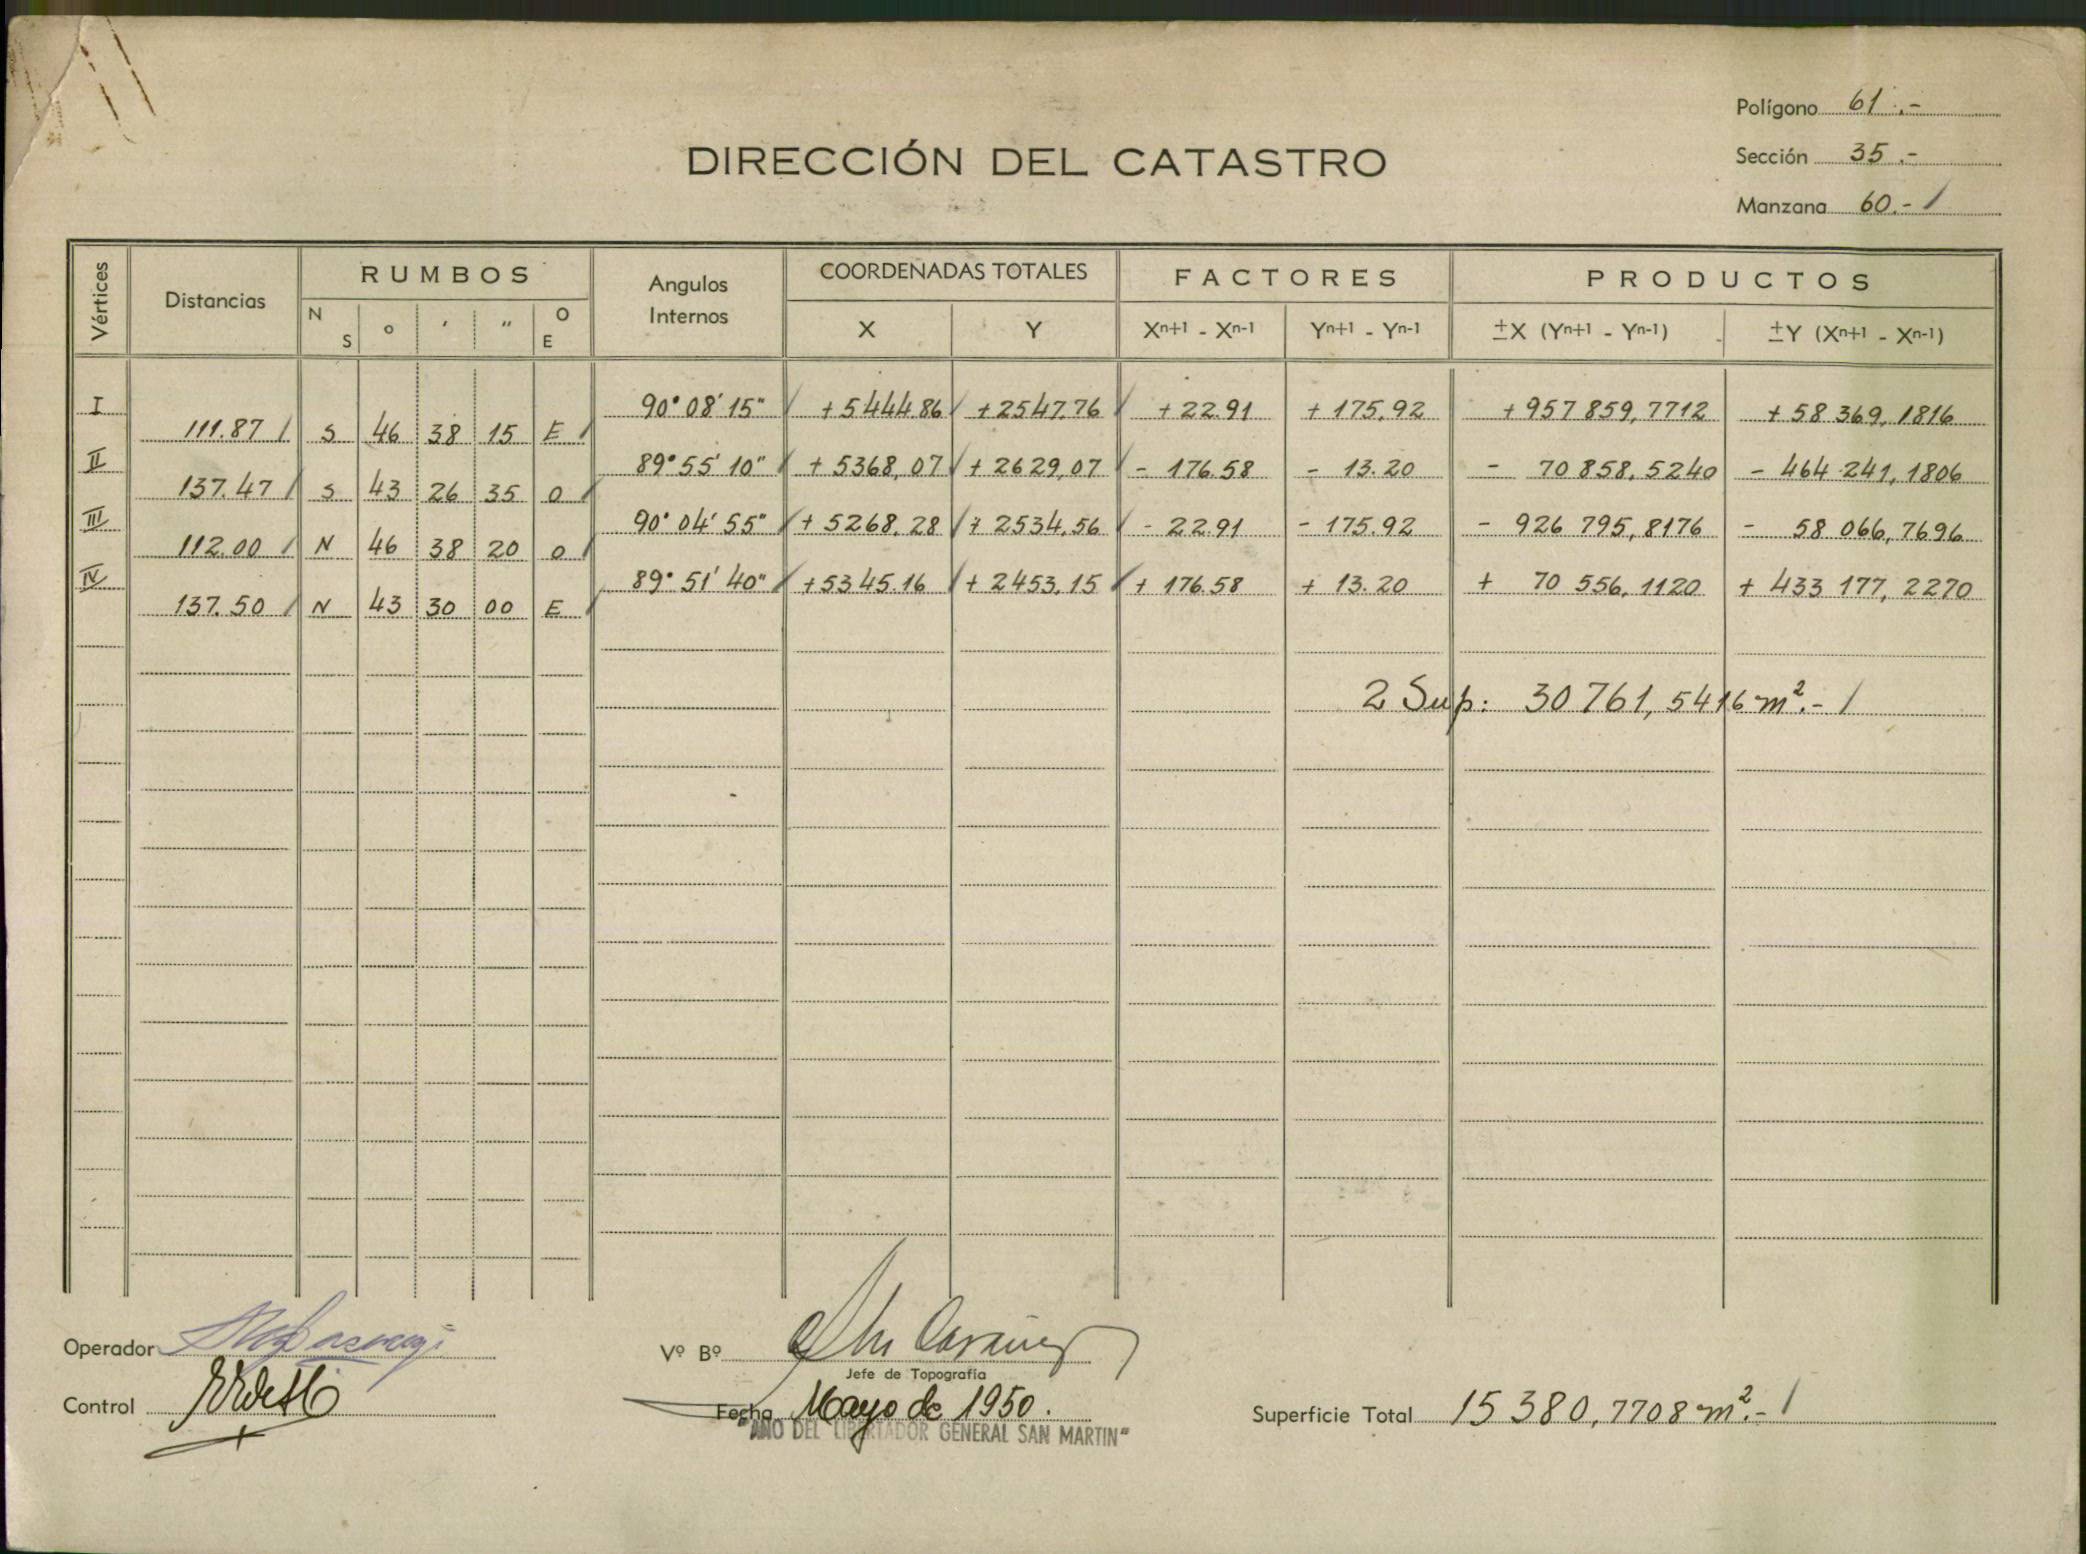 Polígono 61.-
DIRECCIÓN DEL CATASTRO
Sección 35.-
Manzana 60.-
Vértices Distancias RUMBOS Angulos Internos COORDENADAS TOTALES FACTORES PRODUCTOS
N S ° ' " O E X Y Xn+1 - Xn-1 Yn+1 - Yn-1 ±X (Yn+1 - Yn-1) ±Y (Xn+1 - Xn-1)
I 90° 08' 15" +5444.86 +2547.76 +22.91 +175.92 +957 859,7712 +58 369,1816
111.87 S 46 38 15 E
II 89° 55' 10" +5368,07 +2629,07 -176.58 -13.20 -70 858,5240 -464 241,1806
137.47 S 43 26 35 O
III 90° 04' 55" +5268,28 +2534,56 -22.91 -175.92 -926 795,8176 -58 066,7696
112.00 N 46 38 20 O
IV 89° 51' 40" +5345.16 +2453,15 +176.58 +13.20 +70 556,1120 +433 177,2270
137.50 N 43 30 00 E
2 Sup: 30 761,5416 m².-
Operador
Vº Bº
Jefe de Topografía
Control
Fecha Mayo de 1950.
Superficie Total 15 380,7708 m².-
"AÑO DEL LIBERTADOR GENERAL SAN MARTIN"